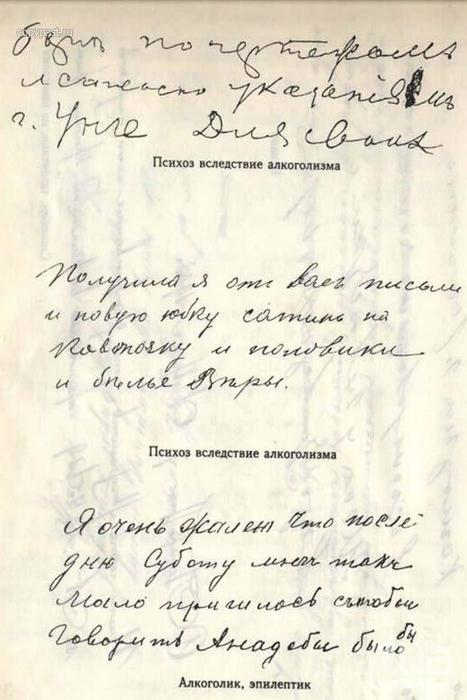 copypast.ru
быть по чертежомъ
и сагласно указаніямъ
г. Унге Для своих
Психоз вследствие алкоголизма
Получила я отъ васъ письмы
и новую юбку сатинъ на
Ковточку и половики
и бѣлье Вѣры.
Психоз вследствие алкоголизма
Я очень жалею что после
дню Суботу мнѣ такъ
мало пришлось стобой
Говорить Анадобы было бы
Алкоголик, эпилептик